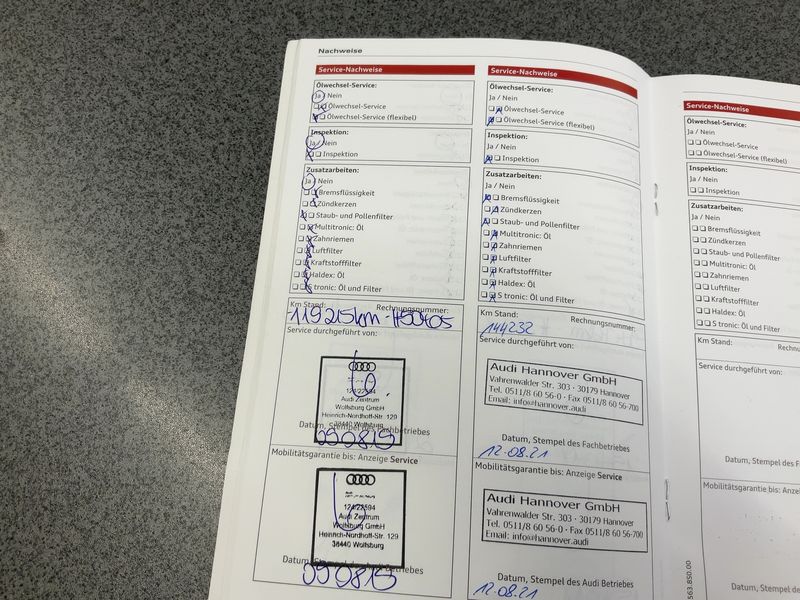 Nachweise
Service-Nachweise
Ölwechsel-Service:
Ja / Nein
Ölwechsel-Service
Ölwechsel-Service (flexibel)
Inspektion:
Ja / Nein
Inspektion
Zusatzarbeiten:
Ja / Nein
Bremsflüssigkeit
Zündkerzen
Staub- und Pollenfilter
Multitronic: Öl
Zahnriemen
Luftfilter
Kraftstofffilter
Haldex: Öl
S tronic: Öl und Filter
Km Stand: Rechnungsnummer:
119215km
Service durchgeführt von:
Audi Zentrum
Wolfsburg GmbH
Heinrich-Nordhoff-Str. 129
38440 Wolfsburg
Datum, Stempel des Fachbetriebes
250815
Mobilitätsgarantie bis: Anzeige Service
Audi Zentrum
Wolfsburg GmbH
Heinrich-Nordhoff-Str. 129
38440 Wolfsburg
Datum, Stempel des Audi Betriebes
250815
Service-Nachweise
Ölwechsel-Service:
Ja / Nein
Ölwechsel-Service
Ölwechsel-Service (flexibel)
Inspektion:
Ja / Nein
Inspektion
Zusatzarbeiten:
Ja / Nein
Bremsflüssigkeit
Zündkerzen
Staub- und Pollenfilter
Multitronic: Öl
Zahnriemen
Luftfilter
Kraftstofffilter
Haldex: Öl
S tronic: Öl und Filter
Km Stand: Rechnungsnummer:
144232
Service durchgeführt von:
Audi Hannover GmbH
Vahrenwalder Str. 303 · 30179 Hannover
Tel. 0511/8 60 56-0 · Fax 0511/8 60 56-700
Email: info@hannover.audi
Datum, Stempel des Fachbetriebes
12.08.21
Mobilitätsgarantie bis: Anzeige Service
Audi Hannover GmbH
Vahrenwalder Str. 303 · 30179 Hannover
Tel. 0511/8 60 56-0 · Fax 0511/8 60 56-700
Email: info@hannover.audi
Datum, Stempel des Audi Betriebes
12.08.21
Service-Nachweise
Ölwechsel-Service:
Ja / Nein
Ölwechsel-Service
Ölwechsel-Service (flexibel)
Inspektion:
Ja / Nein
Inspektion
Zusatzarbeiten:
Ja / Nein
Bremsflüssigkeit
Zündkerzen
Staub- und Pollenfilter
Multitronic: Öl
Zahnriemen
Luftfilter
Kraftstofffilter
Haldex: Öl
S tronic: Öl und Filter
Km Stand: Rechnu
Service durchgeführt von:
Datum, Stempel des F
Mobilitätsgarantie bis: Anzeige
Datum, Stempel des
563.8S0.00